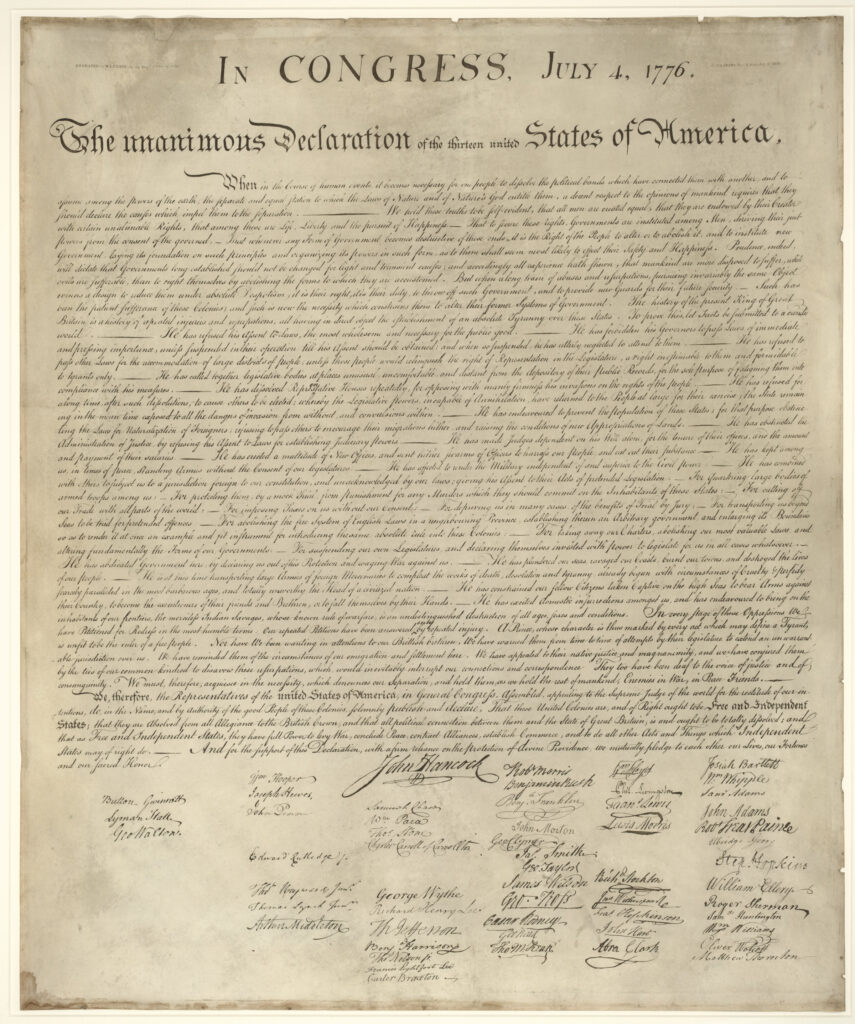 IN CONGRESS, JULY 4, 1776.
The unanimous Declaration of the thirteen united States of America,
When in the Course of human events, it becomes necessary for one people to dissolve the political bands which have connected them with another, and to
assume among the powers of the earth, the separate and equal station to which the Laws of Nature and of Nature's God entitle them, a decent respect to the opinions of mankind requires that they
should declare the causes which impel them to the separation. — We hold these truths to be self-evident, that all men are created equal, that they are endowed by their Creator
with certain unalienable Rights, that among these are Life, Liberty and the pursuit of Happiness.— That to secure these rights, Governments are instituted among Men, deriving their just
powers from the consent of the governed,— That whenever any Form of Government becomes destructive of these ends, it is the Right of the People to alter or to abolish it, and to institute new
Government, laying its foundation on such principles and organizing its powers in such form, as to them shall seem most likely to effect their Safety and Happiness. Prudence, indeed,
will dictate that Governments long established should not be changed for light and transient causes; and accordingly all experience hath shewn, that mankind are more disposed to suffer, while
evils are sufferable, than to right themselves by abolishing the forms to which they are accustomed. But when a long train of abuses and usurpations, pursuing invariably the same Object
evinces a design to reduce them under absolute Despotism, it is their right, it is their duty, to throw off such Government, and to provide new Guards for their future security.— Such has
been the patient sufferance of these Colonies; and such is now the necessity which constrains them to alter their former Systems of Government. The history of the present King of Great
Britain is a history of repeated injuries and usurpations, all having in direct object the establishment of an absolute Tyranny over these States. To prove this, let Facts be submitted to a candid
world. — He has refused his Assent to Laws, the most wholesome and necessary for the public good. — He has forbidden his Governors to pass Laws of immediate
and pressing importance, unless suspended in their operation till his Assent should be obtained; and when so suspended, he has utterly neglected to attend to them. — He has refused to
pass other Laws for the accommodation of large districts of people, unless those people would relinquish the right of Representation in the Legislature, a right inestimable to them and formidable
to tyrants only. — He has called together legislative bodies at places unusual, uncomfortable, and distant from the depository of their Public Records, for the sole purpose of fatiguing them into
compliance with his measures. — He has dissolved Representative Houses repeatedly, for opposing with manly firmness his invasions on the rights of the people. — He has refused for
a long time, after such dissolutions, to cause others to be elected; whereby the Legislative powers, incapable of Annihilation, have returned to the People at large for their exercise; the State remain
ing in the mean time exposed to all the dangers of invasion from without, and convulsions within. — He has endeavoured to prevent the population of these States; for that purpose obstruc
ting the Laws for Naturalization of Foreigners; refusing to pass others to encourage their migrations hither, and raising the conditions of new Appropriations of Lands. — He has obstructed the
Administration of Justice, by refusing his Assent to Laws for establishing Judiciary powers. — He has made Judges dependent on his Will alone, for the tenure of their offices, and the amount
and payment of their salaries. — He has erected a multitude of New Offices, and sent hither swarms of Officers to harrass our people, and eat out their substance. — He has kept among
us, in times of peace, Standing Armies without the Consent of our legislatures. — He has affected to render the Military independent of and superior to the Civil power. — He has combined
with others to subject us to a jurisdiction foreign to our constitution, and unacknowledged by our laws; giving his Assent to their Acts of pretended Legislation: — For Quartering large bodies of
armed troops among us: — For protecting them, by a mock Trial, from punishment for any Murders which they should commit on the Inhabitants of these States: — For cutting off
our Trade with all parts of the world: — For imposing Taxes on us without our Consent: — For depriving us in many cases, of the benefits of Trial by Jury: — For transporting us beyond
Seas to be tried for pretended offences — For abolishing the free System of English Laws in a neighbouring Province, establishing therein an Arbitrary government, and enlarging its Boundaries
so as to render it at once an example and fit instrument for introducing the same absolute rule into these Colonies: — For taking away our Charters, abolishing our most valuable Laws, and
altering fundamentally the Forms of our Governments: — For suspending our own Legislatures, and declaring themselves invested with power to legislate for us in all cases whatsoever. —
He has abdicated Government here, by declaring us out of his Protection and waging War against us. — He has plundered our seas, ravaged our Coasts, burnt our towns, and destroyed the lives
of our people. — He is at this time transporting large Armies of foreign Mercenaries to compleat the works of death, desolation and tyranny, already begun with circumstances of Cruelty & perfidy
scarcely paralleled in the most barbarous ages, and totally unworthy the Head of a civilized nation. — He has constrained our fellow Citizens taken Captive on the high Seas to bear Arms against
their Country, to become the executioners of their friends and Brethren, or to fall themselves by their Hands. — He has excited domestic insurrections amongst us, and has endeavoured to bring on the
inhabitants of our frontiers, the merciless Indian Savages, whose known rule of warfare, is an undistinguished destruction of all ages, sexes and conditions. In every stage of these Oppressions We
have Petitioned for Redress in the most humble terms: Our repeated Petitions have been answered only by repeated injury. A Prince, whose character is thus marked by every act which may define a Tyrant,
is unfit to be the ruler of a free people. Nor have We been wanting in attentions to our Brittish brethren. We have warned them from time to time of attempts by their legislature to extend an unwarrant
able jurisdiction over us. We have reminded them of the circumstances of our emigration and settlement here. We have appealed to their native justice and magnanimity, and we have conjured them
by the ties of our common kindred to disavow these usurpations, which, would inevitably interrupt our connections and correspondence. They too have been deaf to the voice of justice and of
consanguinity. We must, therefore, acquiesce in the necessity, which denounces our Separation, and hold them, as we hold the rest of mankind, Enemies in War, in Peace Friends. —
We, therefore, the Representatives of the united States of America, in General Congress, Assembled, appealing to the Supreme Judge of the world for the rectitude of our in
tentions, do, in the Name, and by Authority of the good People of these Colonies, solemnly publish and declare, That these United Colonies are, and of Right ought to be Free and Independent
States; that they are Absolved from all Allegiance to the British Crown, and that all political connection between them and the State of Great Britain, is and ought to be totally dissolved; and
that as Free and Independent States, they have full Power to levy War, conclude Peace, contract Alliances, establish Commerce, and to do all other Acts and Things which Independent
States may of right do. — And for the support of this Declaration, with a firm reliance on the protection of divine Providence, we mutually pledge to each other our Lives, our Fortunes
and our sacred Honor.
Button Gwinnett
Lyman Hall
Geo Walton.
Wm Hooper
Joseph Hewes,
John Penn
Edward Rutledge.
Thos Heyward Junr.
Thomas Lynch Junr.
Arthur Middleton
John Hancock
Samuel Chase
Wm Paca
Thos Stone
Charles Carroll of Carrollton
George Wythe
Richard Henry Lee
Th Jefferson
Benj Harrison
Thos Nelson jr.
Francis Lightfoot Lee
Carter Braxton
Robt Morris
Benjamin Rush
Benj. Franklin
John Morton
Geo Clymer
Jas. Smith
Geo. Taylor
James Wilson
Geo. Ross
Caesar Rodney
Geo Read
Tho M:Kean
Wm Floyd
Phil. Livingston
Frans. Lewis
Lewis Morris
Richd. Stockton
Jno Witherspoon
Fras. Hopkinson
John Hart
Abra Clark
Josiah Bartlett
Wm Whipple
Saml Adams
John Adams
Robt Treat Paine
Elbridge Gerry
Step. Hopkins
William Ellery
Roger Sherman
Saml Huntington
Wm Williams
Oliver Wolcott
Matthew Thornton